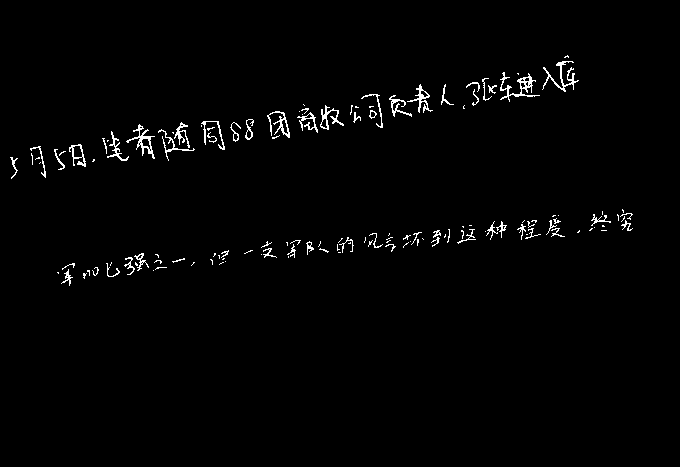 5月5日,笔者随同88团商牧公司负责人,驱车进入库
军加已强之一,但一支军队的风言坏到这种程度,终究